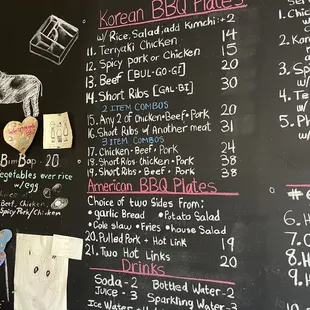 Korean BBQ Plates
w/Rice, Salad, add Kimchi:+2
11. Terryaki Chicken 14
12. Spicy pork or Chicken 15
13. Beef [BUL-GO-GI] 20
14. Short Ribs [GAL-BI] 30
2 ITEM COMBOS
15. Any 2 of Chicken•Beef•Pork 20
16. Short Ribs w/ another meat 31
3 ITEM COMBOS
17. Chicken•Beef•Pork 24
18. Short Ribs•Chicken•Pork 38
19. Short Ribs•Beef•Pork 38
American BBQ Plates
Choice of two Sides From:
•garlic Bread •Potato Salad
•Cole slaw •Fries •house Salad
20. Pulled Pork + Hot Link 19
21. Two Hot Links 20
Drinks
Soda-2 Bottled Water-2
Juice-3 Sparkling Water-3
Ice Water
Bim Bap 20
Vegetables over rice
w/egg
Beef, Chicken
Spicy Pork/Chicken